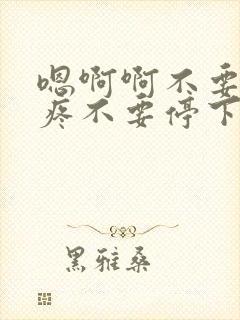 嗯啊啊不要
疼不要停下
黑雅桑